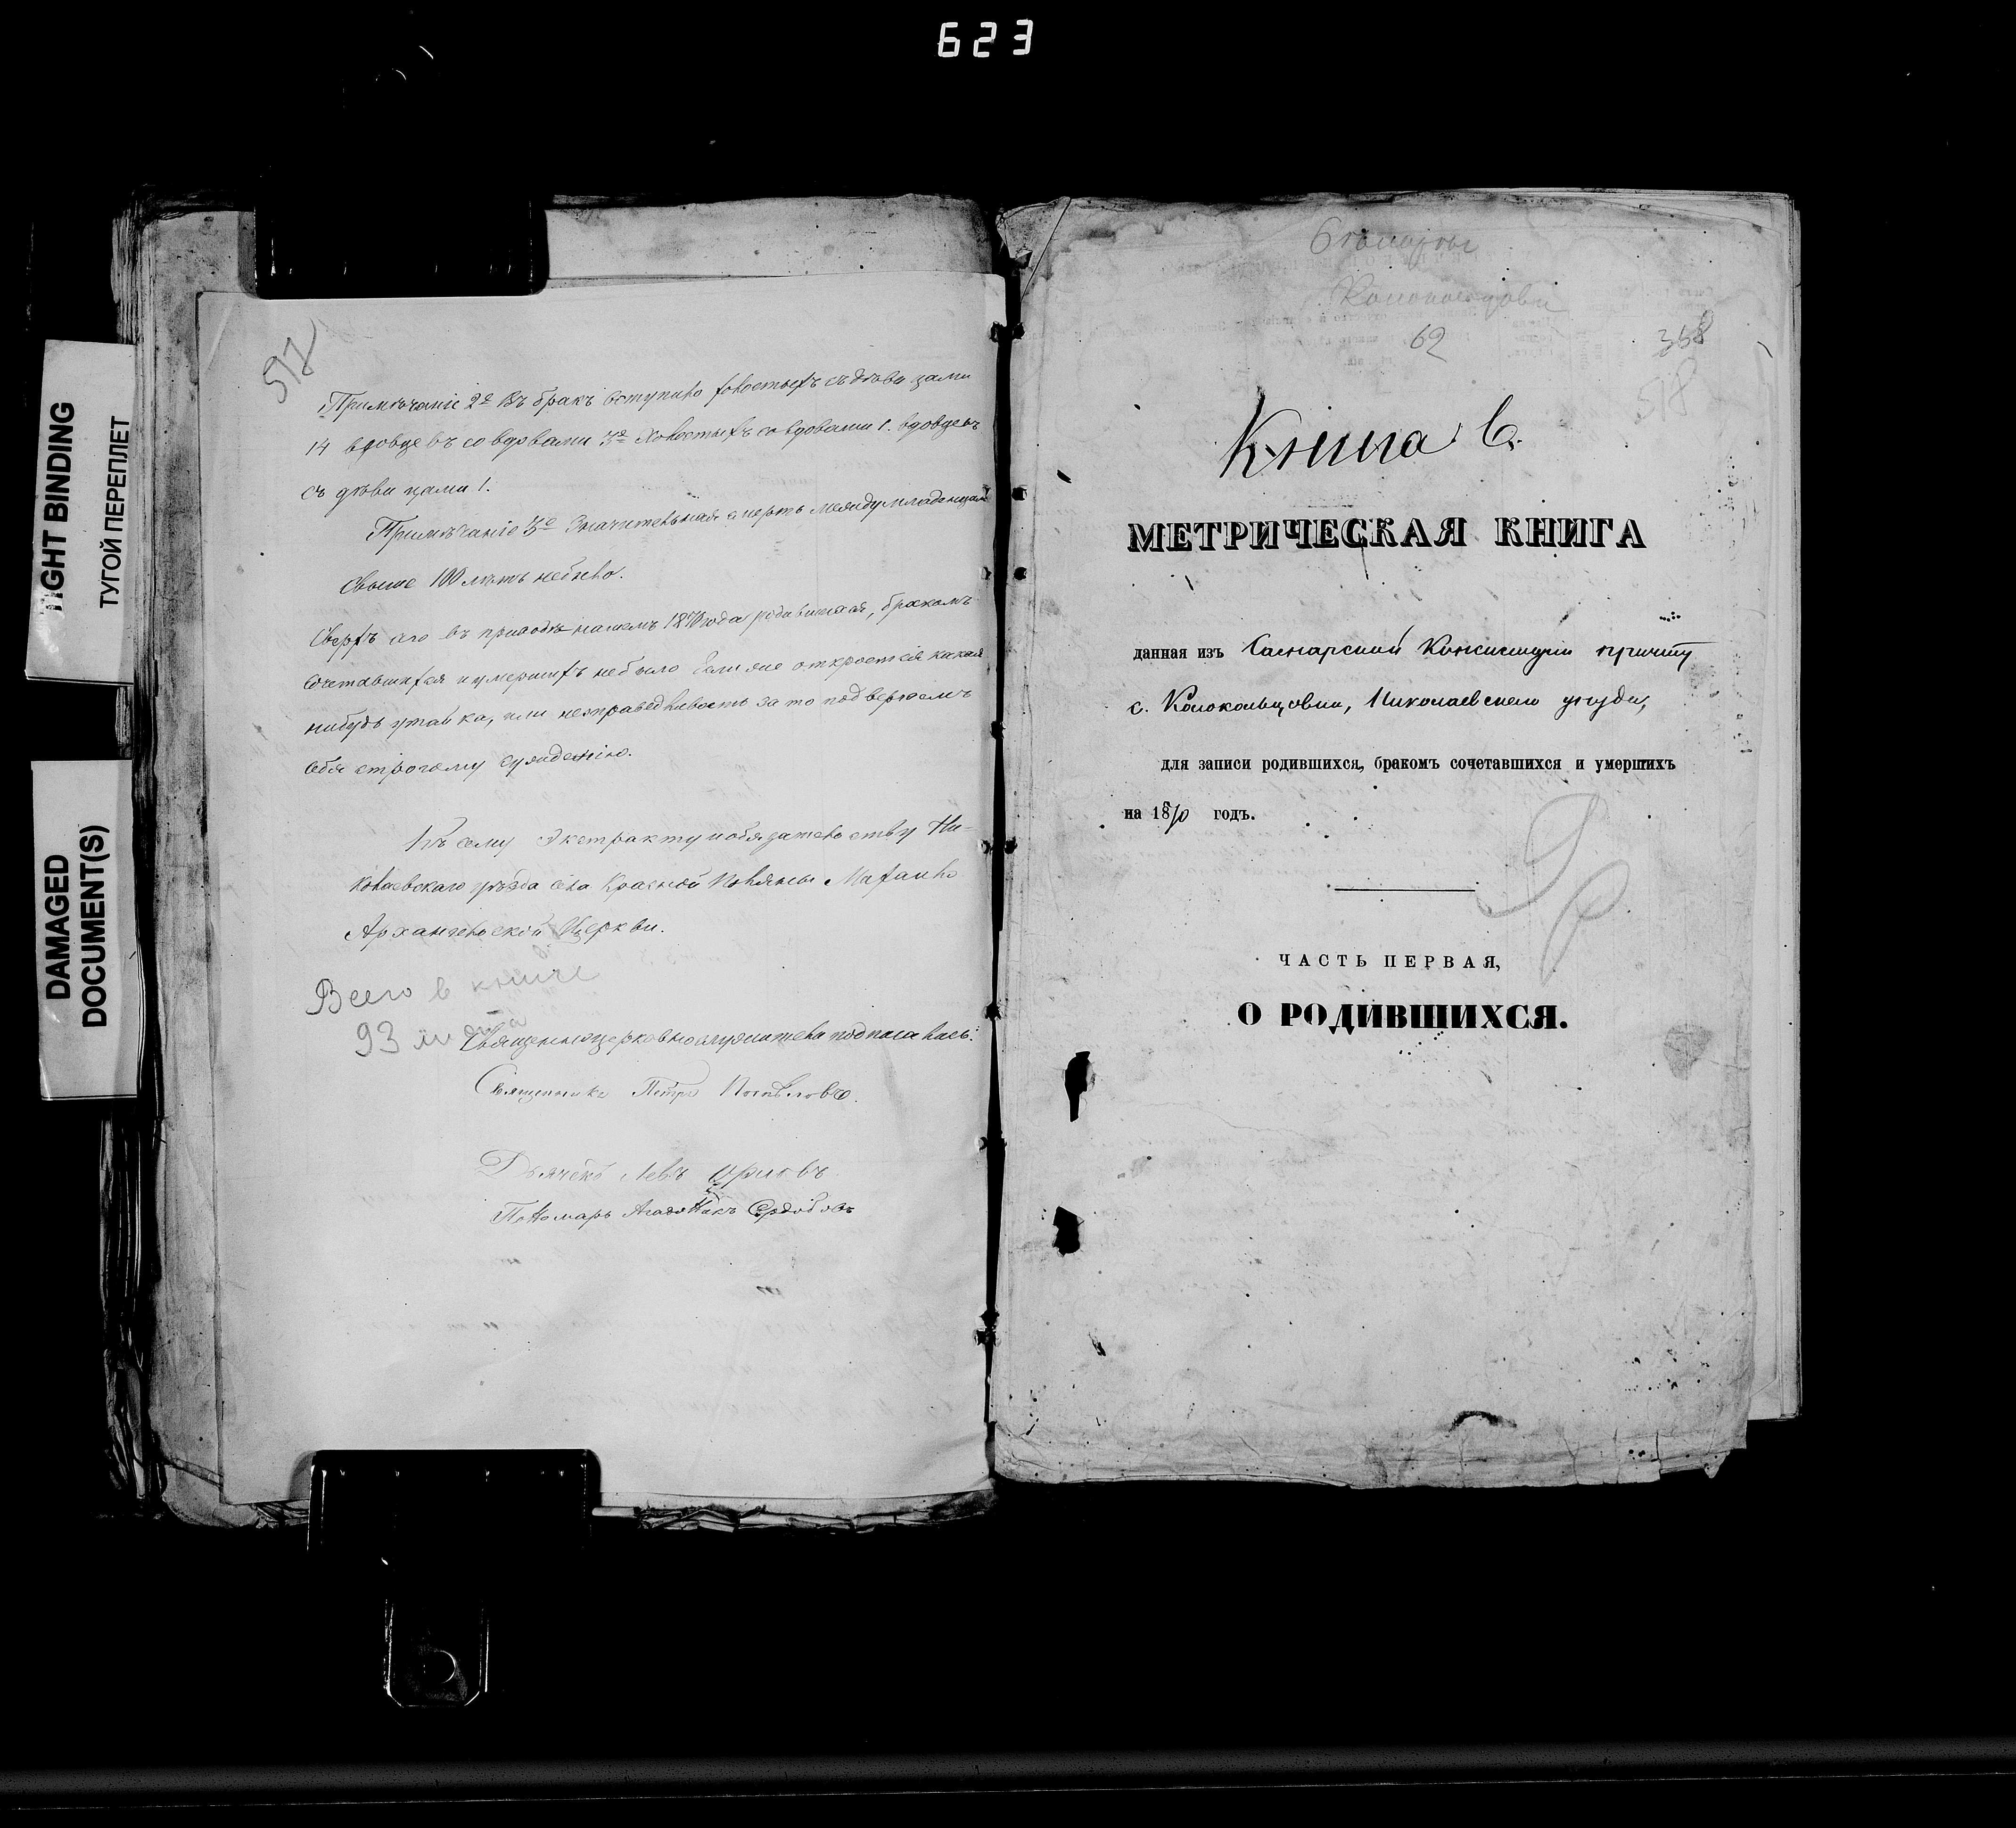 623
TIGHT BINDING
ТУГОЙ ПЕРЕПЛЕТ
DAMAGED
DOCUMENT(S)
Примѣчаніе 2е Въ бракъ вступило холостыхъ съ дѣвицами
14 вдовцевъ со вдовами 3. Холостыхъ со вдовами 1. вдовцевъ
съ дѣвицами 1.
Примѣчаніе 3е Значительная смерть между младенцами
Свыше 100 лѣтъ небыло.
Сверхъ сего въ приходѣ нашемъ 1870 года родившихся, бракомъ
сочетавшихся и умершихъ небыло Если же откроется какая
нибудь утайка, или несправедливость за то подвергаемъ
себя строгому сужденію.
Къ сему Экстракту и обязательству Ни-
колаевскаго уѣзда села Красной Поляны Михаило
Архангельской Церкви.
Всего в книге
93 листа
Священноцерковнослужители подписались:
Священникъ Петръ
Дьячекъ Левъ
Пономарь
62
368
518
Книга
МЕТРИЧЕСКАЯ КНИГА
данная изъ Самарской Консисторіи причту
с. Колокольцовки, Николаевскаго уѣзда,
для записи родившихся, бракомъ сочетавшихся и умершихъ
на 1870 годъ.
ЧАСТЬ ПЕРВАЯ,
О РОДИВШИХСЯ.